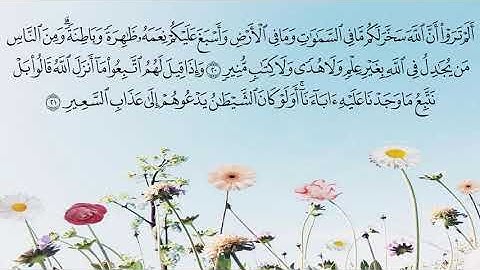 أَلَمْ تَرَوْا۟ أَنَّ ٱللَّهَ سَخَّرَ لَكُم مَّا فِى ٱلسَّمَٰوَٰتِ وَمَا فِى ٱلْأَرْضِ وَأَسْبَغَ عَلَيْكُمْ نِعَمَهُۥ ظَٰهِرَةً وَبَاطِنَةً ۗ وَمِنَ ٱلنَّاسِ
مَن يُجَٰدِلُ فِى ٱللَّهِ بِغَيْرِ عِلْمٍ وَلَا هُدًى وَلَا كِتَٰبٍ مُّنِيرٍ ٢٠ وَإِذَا قِيلَ لَهُمُ ٱتَّبِعُوا۟ مَآ أَنزَلَ ٱللَّهُ قَالُوا۟ بَلْ
نَتَّبِعُ مَا وَجَدْنَا عَلَيْهِ ءَابَآءَنَآ ۚ أَوَلَوْ كَانَ ٱلشَّيْطَٰنُ يَدْعُوهُمْ إِلَىٰ عَذَابِ ٱلسَّعِيرِ ٢١